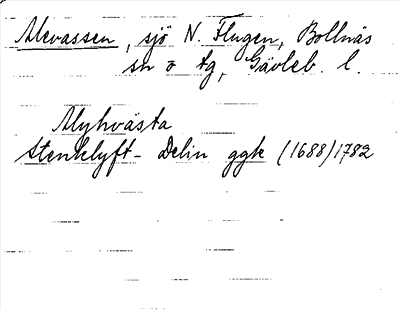 Alevassen, sjö N. Flugen, Bollnäs
sn o tg, Gävleb. l.
Alyhvästa
Stenklyft - Delin ggk (1688)1782